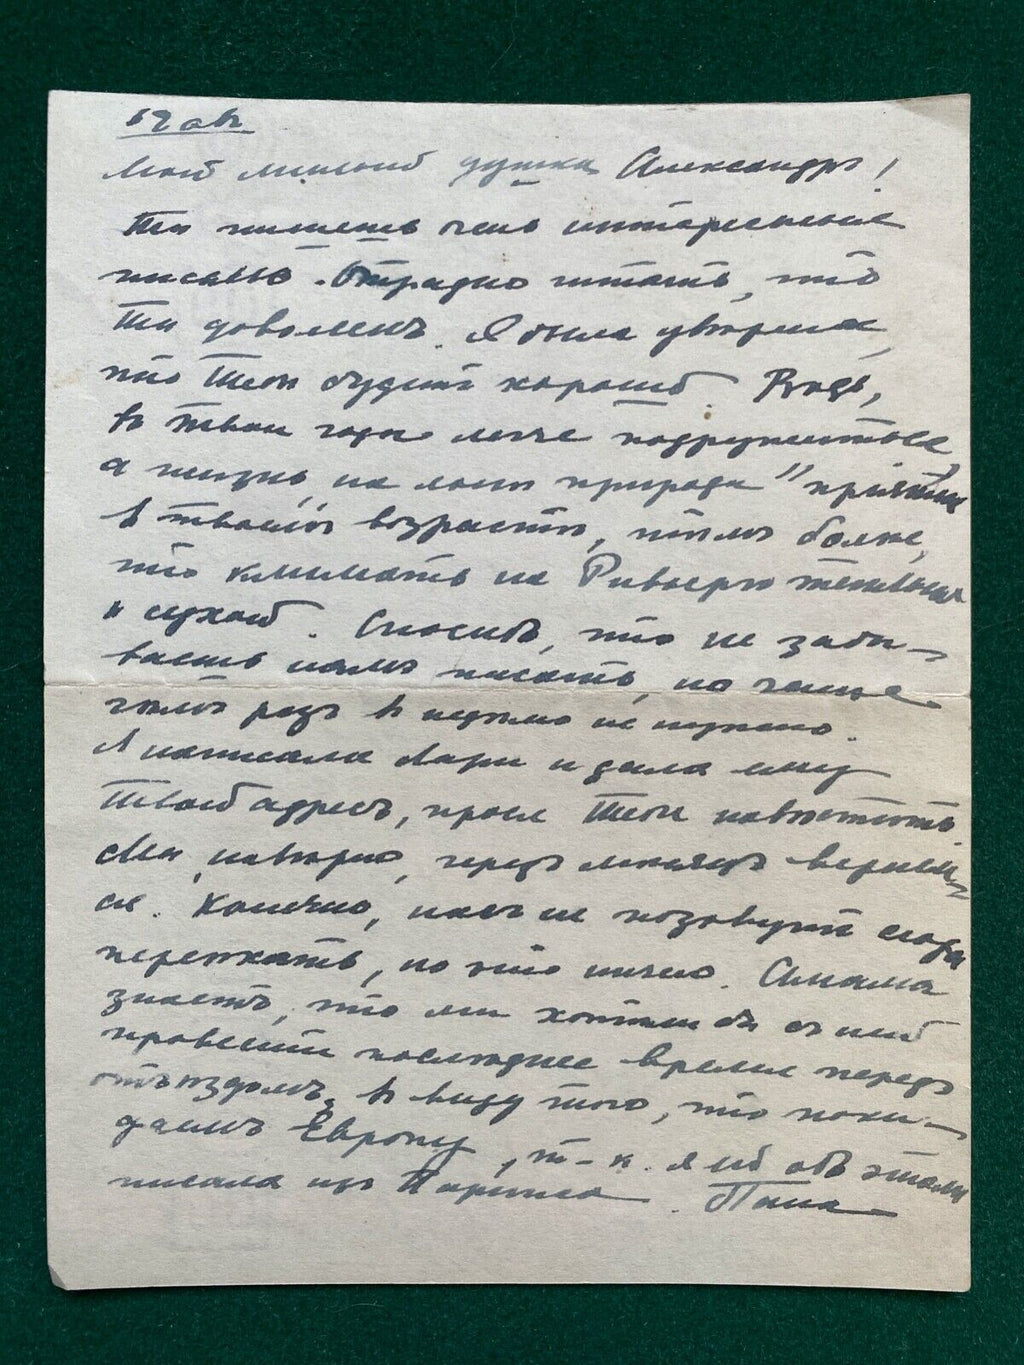 19 ав.
Мой милый душка Александръ!
Ты пишешь очень интересные
письма. Отрадно читать, что
Ты доволенъ. Я была уверена,
что Тебе будетъ хорошо. Ведь,
въ твои годы легче подружиться,
а жизнь „на лоне природы" приятна
въ твоемъ возрасте, темъ более,
что климатъ на Ривьере
и сухой. Спасибо, что не забы-
ваешь намъ писать, но чаще
чемъ разъ въ неделю не нужно.
Я написала Мари и дала ему
Твой адресъ, прося Тебя навестить.
Мы, наверно, черезъ месяцъ вернем-
ся. Конечно, насъ не позовутъ сюда
переехать, но это ничего. Амама
знаетъ, что мы хотели бы съ ней
провести последнее время передъ
отъездомъ, въ виду того, что поки-
даемъ Европу, т-к. я ей объ этомъ
писала изъ Парижа. Папа